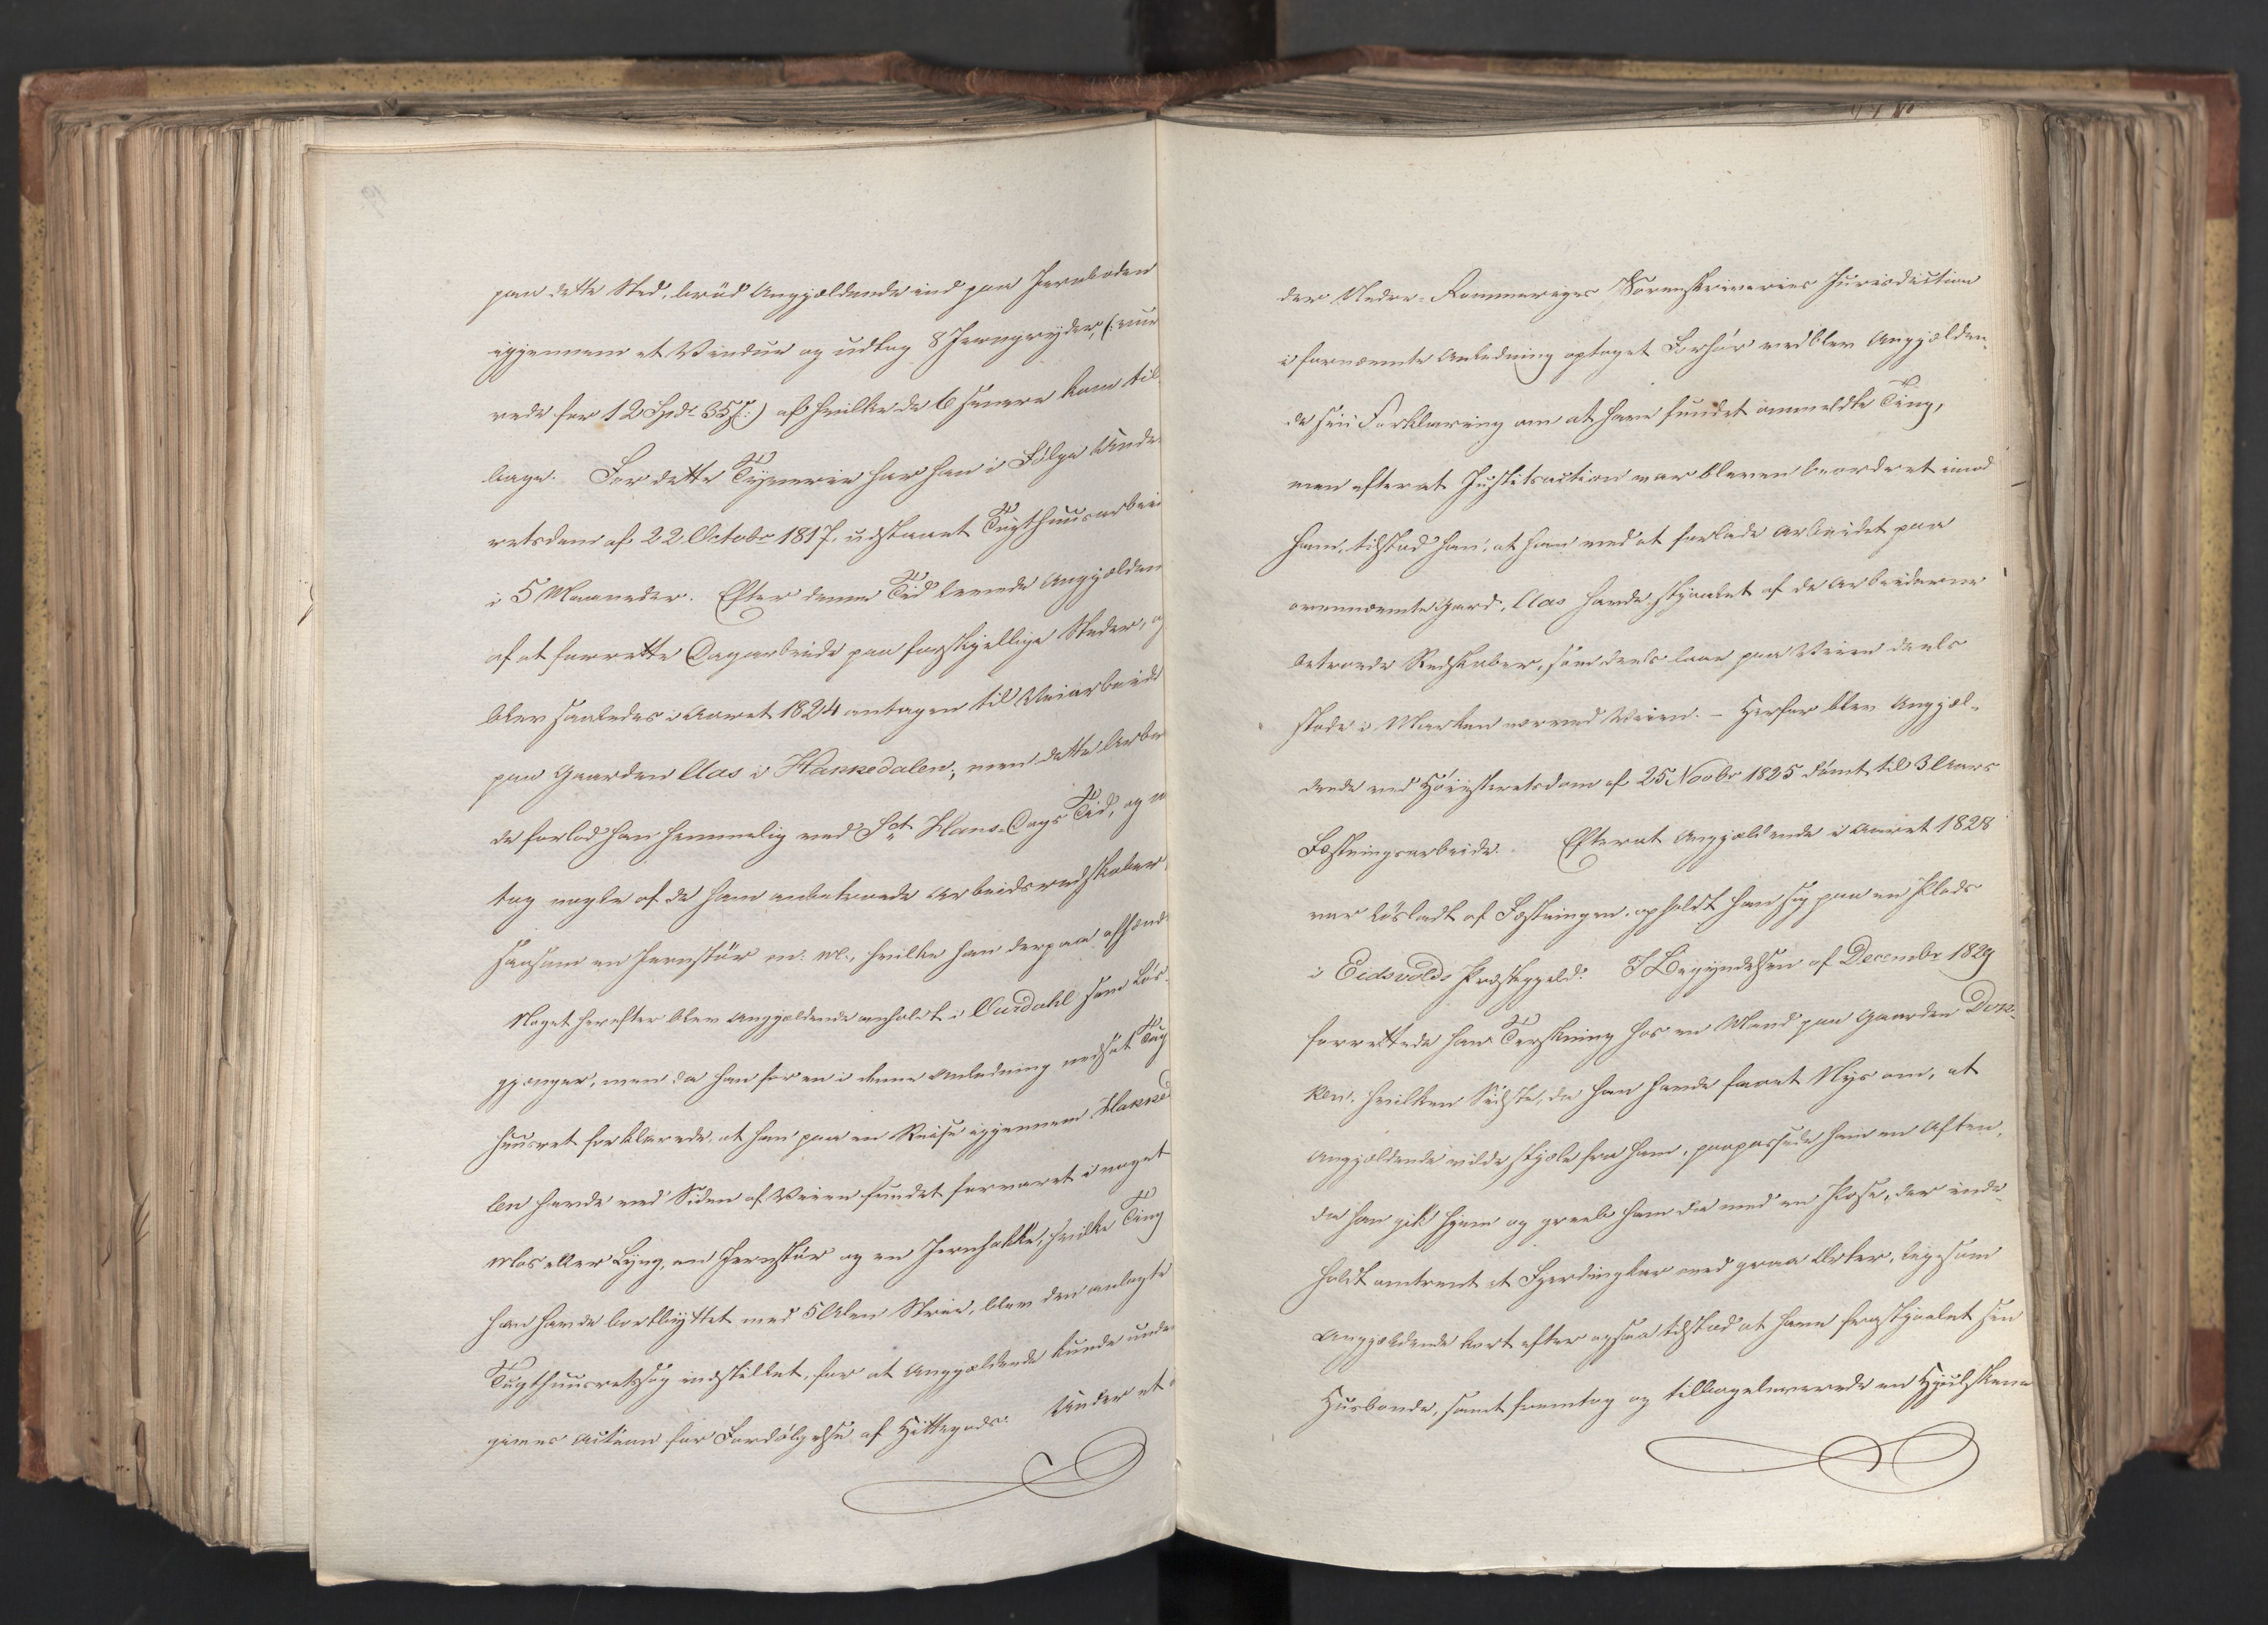 paa dette Sted, brød Angjældende ind paa Jernboden
igjennem et Vindue og udtog 8 Jerngryder, (: vur
rede for 12 Spd. 35 ß:) af hvilke de 6 senere kom til
bage. For dette Tyverie har han i Følge Unde
retsdom af 22 Octobr 1817, udstaaet Tugthuusarbei
i 5 Maaneder. Efter denne Tid levede Angjælden
af at forrette Dagarbeide paa forskjellige Steder, og
blev saaledes i Aaret 1824 antagen til Veiarbeide
paa Gaarden Aas i Hakkedalen; men dette Arbei
de forlod han hemmelig ved Sct Hans-Dags Tid, og
tog nogle af de ham anbetroede Arbeidsredskaber,
saasom en Jernstør m: m:, hvilke han derpaa afhænd
Noget herefter blev Angjældende anholdt i Ourdahl som Løs-
gjænger, men da han for en i denne Anledning nedsat Tug
huusret forklarede, at han paa en Reise igjennem Hakked
len havde ved Siden af Veien fundet forvaret i noget
Mos eller Lyng, en Jernstør og en Jernhakke, hvilke Ting
han havde bortbyttet mod 5 Alen Strie, blev den anlagte
Tugthuusretssag indstillet, for at Angjældende kunde unde
gives Action for Fordølgelse af Hittegods. Under et
der Nedre-Rommeriges Sorenskriveries Jurisdiction
i fornævnte Anledning optaget Forhør vedblev Angjælden-
de sin Forklaring om at have fundet ommeldte Ting,
men efterat Justitsaction var bleven beordret imod
ham, tilstod han, at han ved at forlade Arbeidet paa
ovennævnte Gaard, Aas havde stjaalet af de Arbeiderne
betroede Redskaber, som deels laae paa Veien deels
stode i Marken nærved Veien. - Herfor blev Angjæl-
dende ved Høiesteretsdom af 25 Novbr 1825 dømt til 3 Aars
Fæstningsarbeide. Efterat Angjældende i Aaret 1828
var løsladt af Fæstningen, opholdt han sig paa en Plads
i Eidsvolds Præstegjeld. I Begyndelsen af Decembr 1829
forrettede han Terskning hos en Mand paa Gaarden Dok-
ken, hvilken Sidste, da han havde faaet Nys om, at
Angjældende vilde stjæle fra ham, paapassede ham en Aften,
da han gik hjem og greb ham da med en Pose, der inde-
holdt omtrent et Fjerdingkar med graa Erter, ligesom
Angjældende kort efter ogsaa tilstod at have frastjaalet sin
Huusbonde, samt fremtog og tilbageleverede en Hjulskene